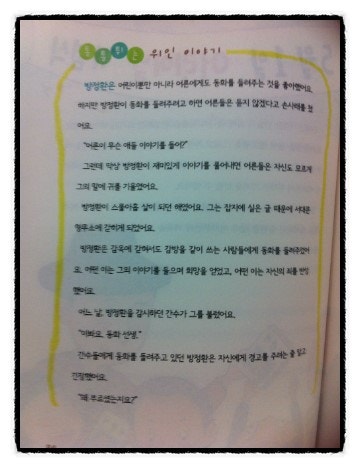 위인 이야기
방정환은 어린이뿐만 아니라 어른에게도 동화를 들려주는 것을 좋아했어요.
하지만 방정환이 동화를 들려주려고 하면 어른들은 듣지 않겠다고 손사래를 쳤
어요.
"어른이 무슨 애들 이야기를 들어?"
그런데 막상 방정환이 재미있게 이야기를 풀어내면 어른들은 자신도 모르게
그의 말에 귀를 기울였어요.
방정환이 스물아홉 살이 되던 해였어요. 그는 잡지에 실은 글 때문에 서대문
형무소에 갇히게 되었어요.
방정환은 감옥에 갇혀서도 감방을 같이 쓰는 사람들에게 동화를 들려주었어
요. 어떤 이는 그의 이야기를 들으며 희망을 얻었고, 어떤 이는 자신의 죄를 반성
했어요.
어느 날, 방정환을 감시하던 간수가 그를 불렀어요.
"이봐요, 동화 선생."
간수들에게 동화를 들려주고 있던 방정환은 자신에게 경고를 주려는 줄 알고
긴장했어요.
"왜 부르셨는지요?"